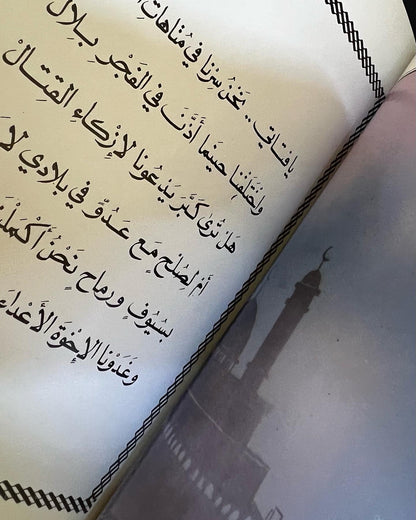 يا فتاتي .. نَحْنُ سِرْنا في مُتاهاتِ
واخْتَلَفْنا حينَما أَذَّنَ في الفَجْرِ بِلالْ
هَلْ تُرىٰ كَبَّرَ يَدْعُونا لإِذْكاءِ القِتالْ
أَمْ لِصُلْحٍ مَعَ عَدُوٍّ في بِلادي
بِسُيُوفٍ ورِماحٍ نَحْنُ
وغَدَوْنا الإِخْوَةَ الأَعْداءَ